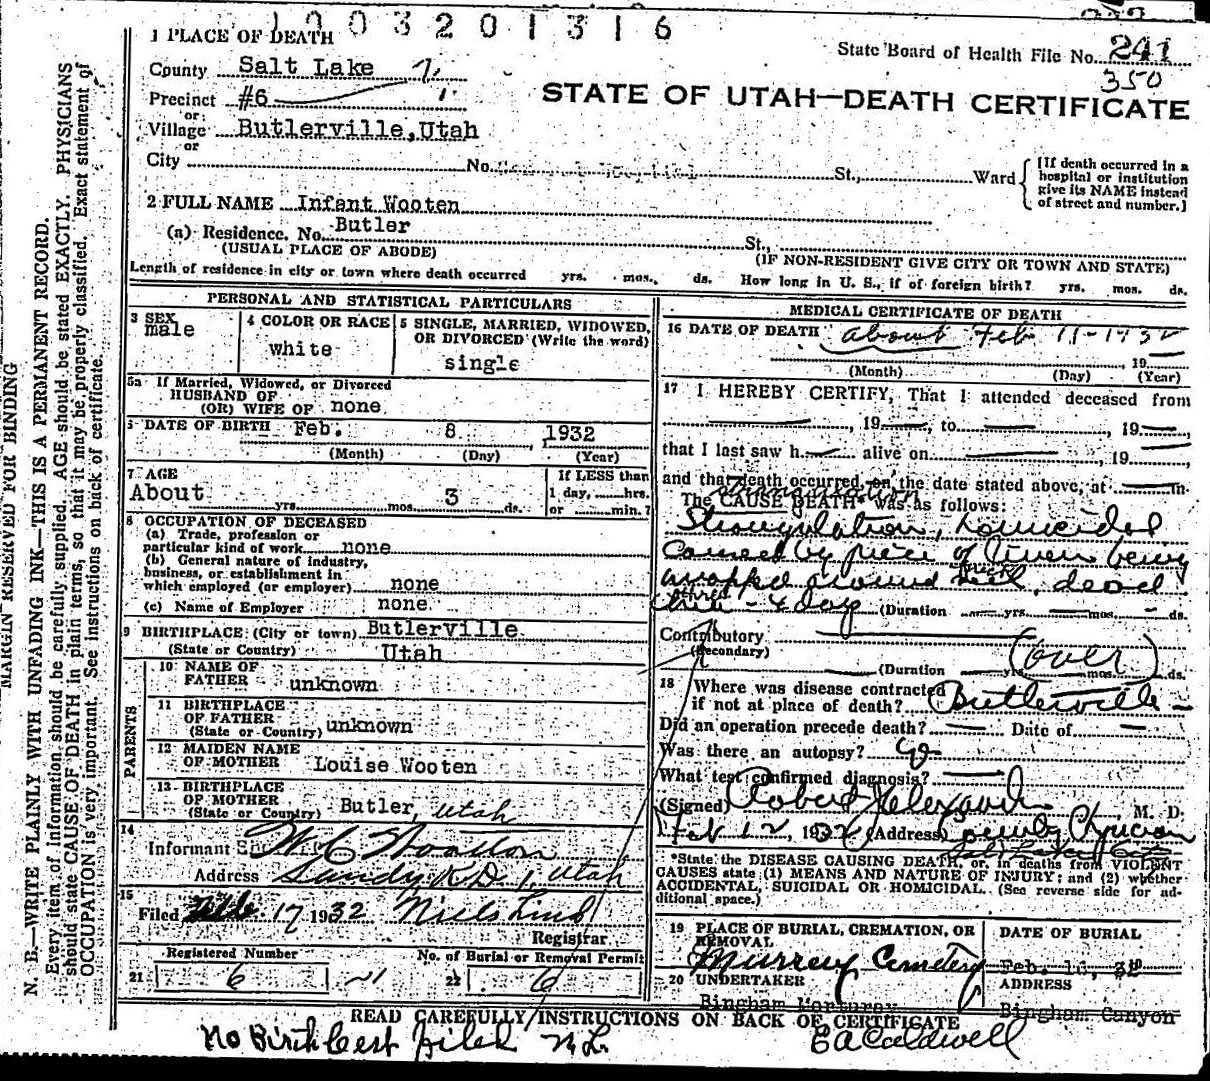 1003201316
1 PLACE OF DEATH
State Board of Health File No. 241
350
County Salt Lake
Precinct #6
or
Village Butlerville, Utah
or
City No. St., Ward
[If death occurred in a hospital or institution give its NAME instead of street and number.]
STATE OF UTAH—DEATH CERTIFICATE
2 FULL NAME Infant Wooten
(a) Residence. No. Butler St.,
(USUAL PLACE OF ABODE) (IF NON-RESIDENT GIVE CITY OR TOWN AND STATE)
Length of residence in city or town where death occurred yrs. mos. ds. How long in U. S., if of foreign birth? yrs. mos. ds.
PERSONAL AND STATISTICAL PARTICULARS
3 SEX male
4 COLOR OR RACE white
5 SINGLE, MARRIED, WIDOWED, OR DIVORCED (Write the word) single
5a If Married, Widowed, or Divorced
HUSBAND OF
(OR) WIFE OF none
DATE OF BIRTH Feb. 8 1932
(Month) (Day) (Year)
7 AGE About yrs. mos. 3 ds.
If LESS than
1 day, hrs.
or min.?
8 OCCUPATION OF DECEASED
(a) Trade, profession or
particular kind of work none
(b) General nature of industry,
business, or establishment in
which employed (or employer) none
(c) Name of Employer none
9 BIRTHPLACE (City or town) Butlerville
(State or Country) Utah
PARENTS
10 NAME OF
FATHER unknown
11 BIRTHPLACE
OF FATHER
(State or Country) unknown
12 MAIDEN NAME
OF MOTHER Louise Wooten
13 BIRTHPLACE
OF MOTHER
(State or Country) Butler, Utah
14
Informant W C Wootton
Address Sandy R.D. 1, Utah
15
Filed Feb 17 1932 Niels Lind
Registrar
Registered Number No. of Burial or Removal Permit
21 6 22 6
MEDICAL CERTIFICATE OF DEATH
16 DATE OF DEATH about Feb 11-1932
19
(Month) (Day) (Year)
17 I HEREBY CERTIFY, That I attended deceased from
, 19 , to , 19 ,
that I last saw h alive on , 19
and that death occurred, on the date stated above, at m.
The CAUSE OF DEATH* was as follows:
Strangulation, homicidal
caused by piece of linen being
wrapped around neck, dead
three - 4 day (Duration yrs. mos. ds.
Contributory
(Secondary)
(Duration yrs. mos. ds.
(over)
18 Where was disease contracted
if not at place of death? Butlerville
Did an operation precede death? Date of
Was there an autopsy?
What test confirmed diagnosis?
(Signed) Robert Alexander M. D.
Feb 12, 1932 (Address) County Physician
*State the DISEASE CAUSING DEATH, or, in deaths from VIOLENT
CAUSES state (1) MEANS AND NATURE OF INJURY; and (2) whether
ACCIDENTAL, SUICIDAL OR HOMICIDAL. (See reverse side for ad-
ditional space.)
19 PLACE OF BURIAL, CREMATION, OR
REMOVAL
Murray Cemetery
DATE OF BURIAL
Feb.
20 UNDERTAKER
Bingham Mortuary
ADDRESS
Bingham Canyon
READ CAREFULLY INSTRUCTIONS ON BACK OF CERTIFICATE
No Birth Cert filed N.L. E A Caldwell
MARGIN RESERVED FOR BINDING
N. B.—WRITE PLAINLY WITH UNFADING INK—THIS IS A PERMANENT RECORD.
Every item of information should be carefully supplied. AGE should be stated EXACTLY. PHYSICIANS
should state CAUSE OF DEATH in plain terms, so that it may be properly classified. Exact statement of
OCCUPATION is very important. See instructions on back of certificate.